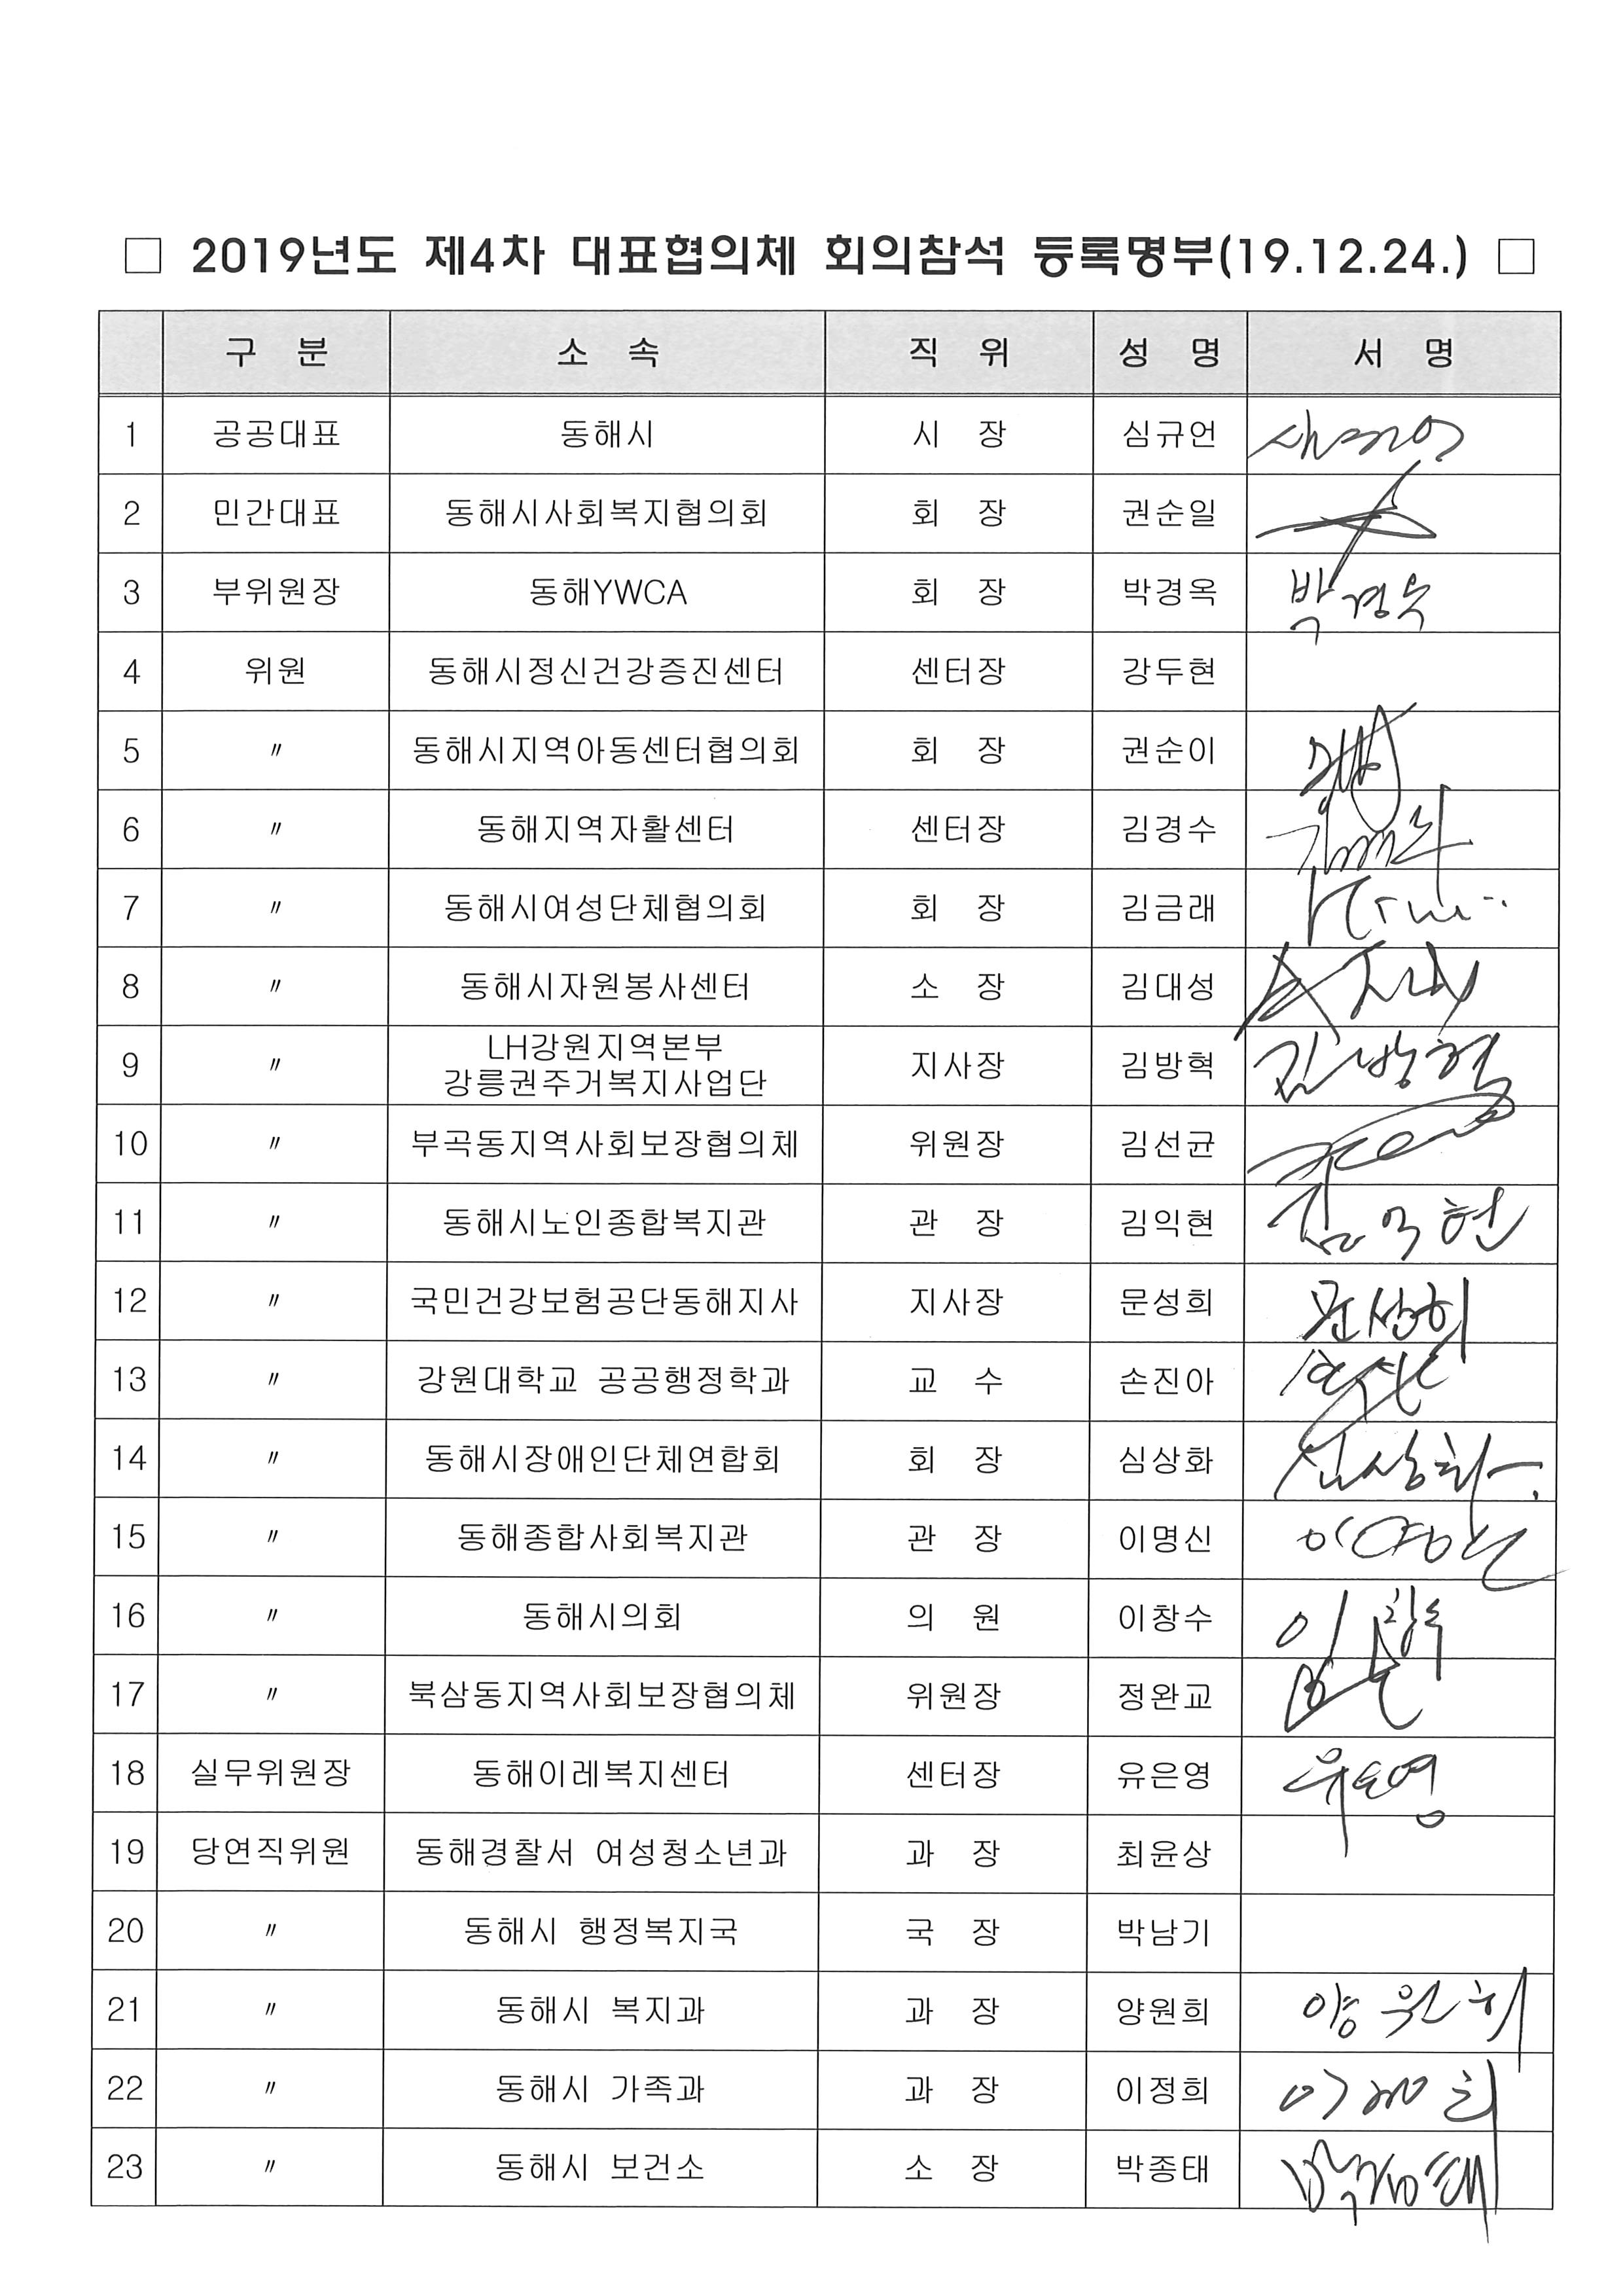 □ 2019년도 제4차 대표협의체 회의참석 등록명부(19.12.24.) □
구 분 소 속 직 위 성 명 서 명
1 공공대표 동해시 시 장 심규언
2 민간대표 동해시사회복지협의회 회 장 권순일
3 부위원장 동해YWCA 회 장 박경옥 박경옥
4 위원 동해시정신건강증진센터 센터장 강두현
5 〃 동해시지역아동센터협의회 회 장 권순이
6 〃 동해지역자활센터 센터장 김경수
7 〃 동해시여성단체협의회 회 장 김금래
8 〃 동해시자원봉사센터 소 장 김대성
9 〃 LH강원지역본부
강릉권주거복지사업단 지사장 김방혁 김방혁
10 〃 부곡동지역사회보장협의체 위원장 김선균
11 〃 동해시노인종합복지관 관 장 김익현 김익현
12 〃 국민건강보험공단동해지사 지사장 문성희 문성희
13 〃 강원대학교 공공행정학과 교 수 손진아
14 〃 동해시장애인단체연합회 회 장 심상화 심상화
15 〃 동해종합사회복지관 관 장 이명신
16 〃 동해시의회 의 원 이창수 이창수
17 〃 북삼동지역사회보장협의체 위원장 정완교
18 실무위원장 동해이레복지센터 센터장 유은영 유은영
19 당연직위원 동해경찰서 여성청소년과 과 장 최윤상
20 〃 동해시 행정복지국 국 장 박남기
21 〃 동해시 복지과 과 장 양원희 양원희
22 〃 동해시 가족과 과 장 이정희 이정희
23 〃 동해시 보건소 소 장 박종태 박종태